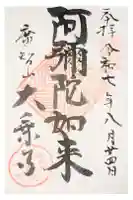 奉拝 令和七年八月廿四日
阿彌陀如来
大乗寺